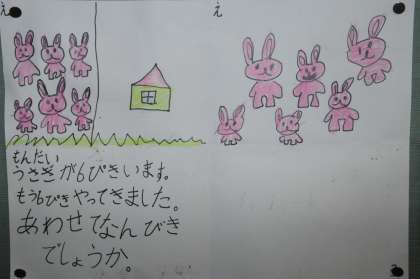 え
え
もんだい
うさぎが6ぴきいます。
もう6ぴきやってきました。
あわせてなんびき
でしょうか。